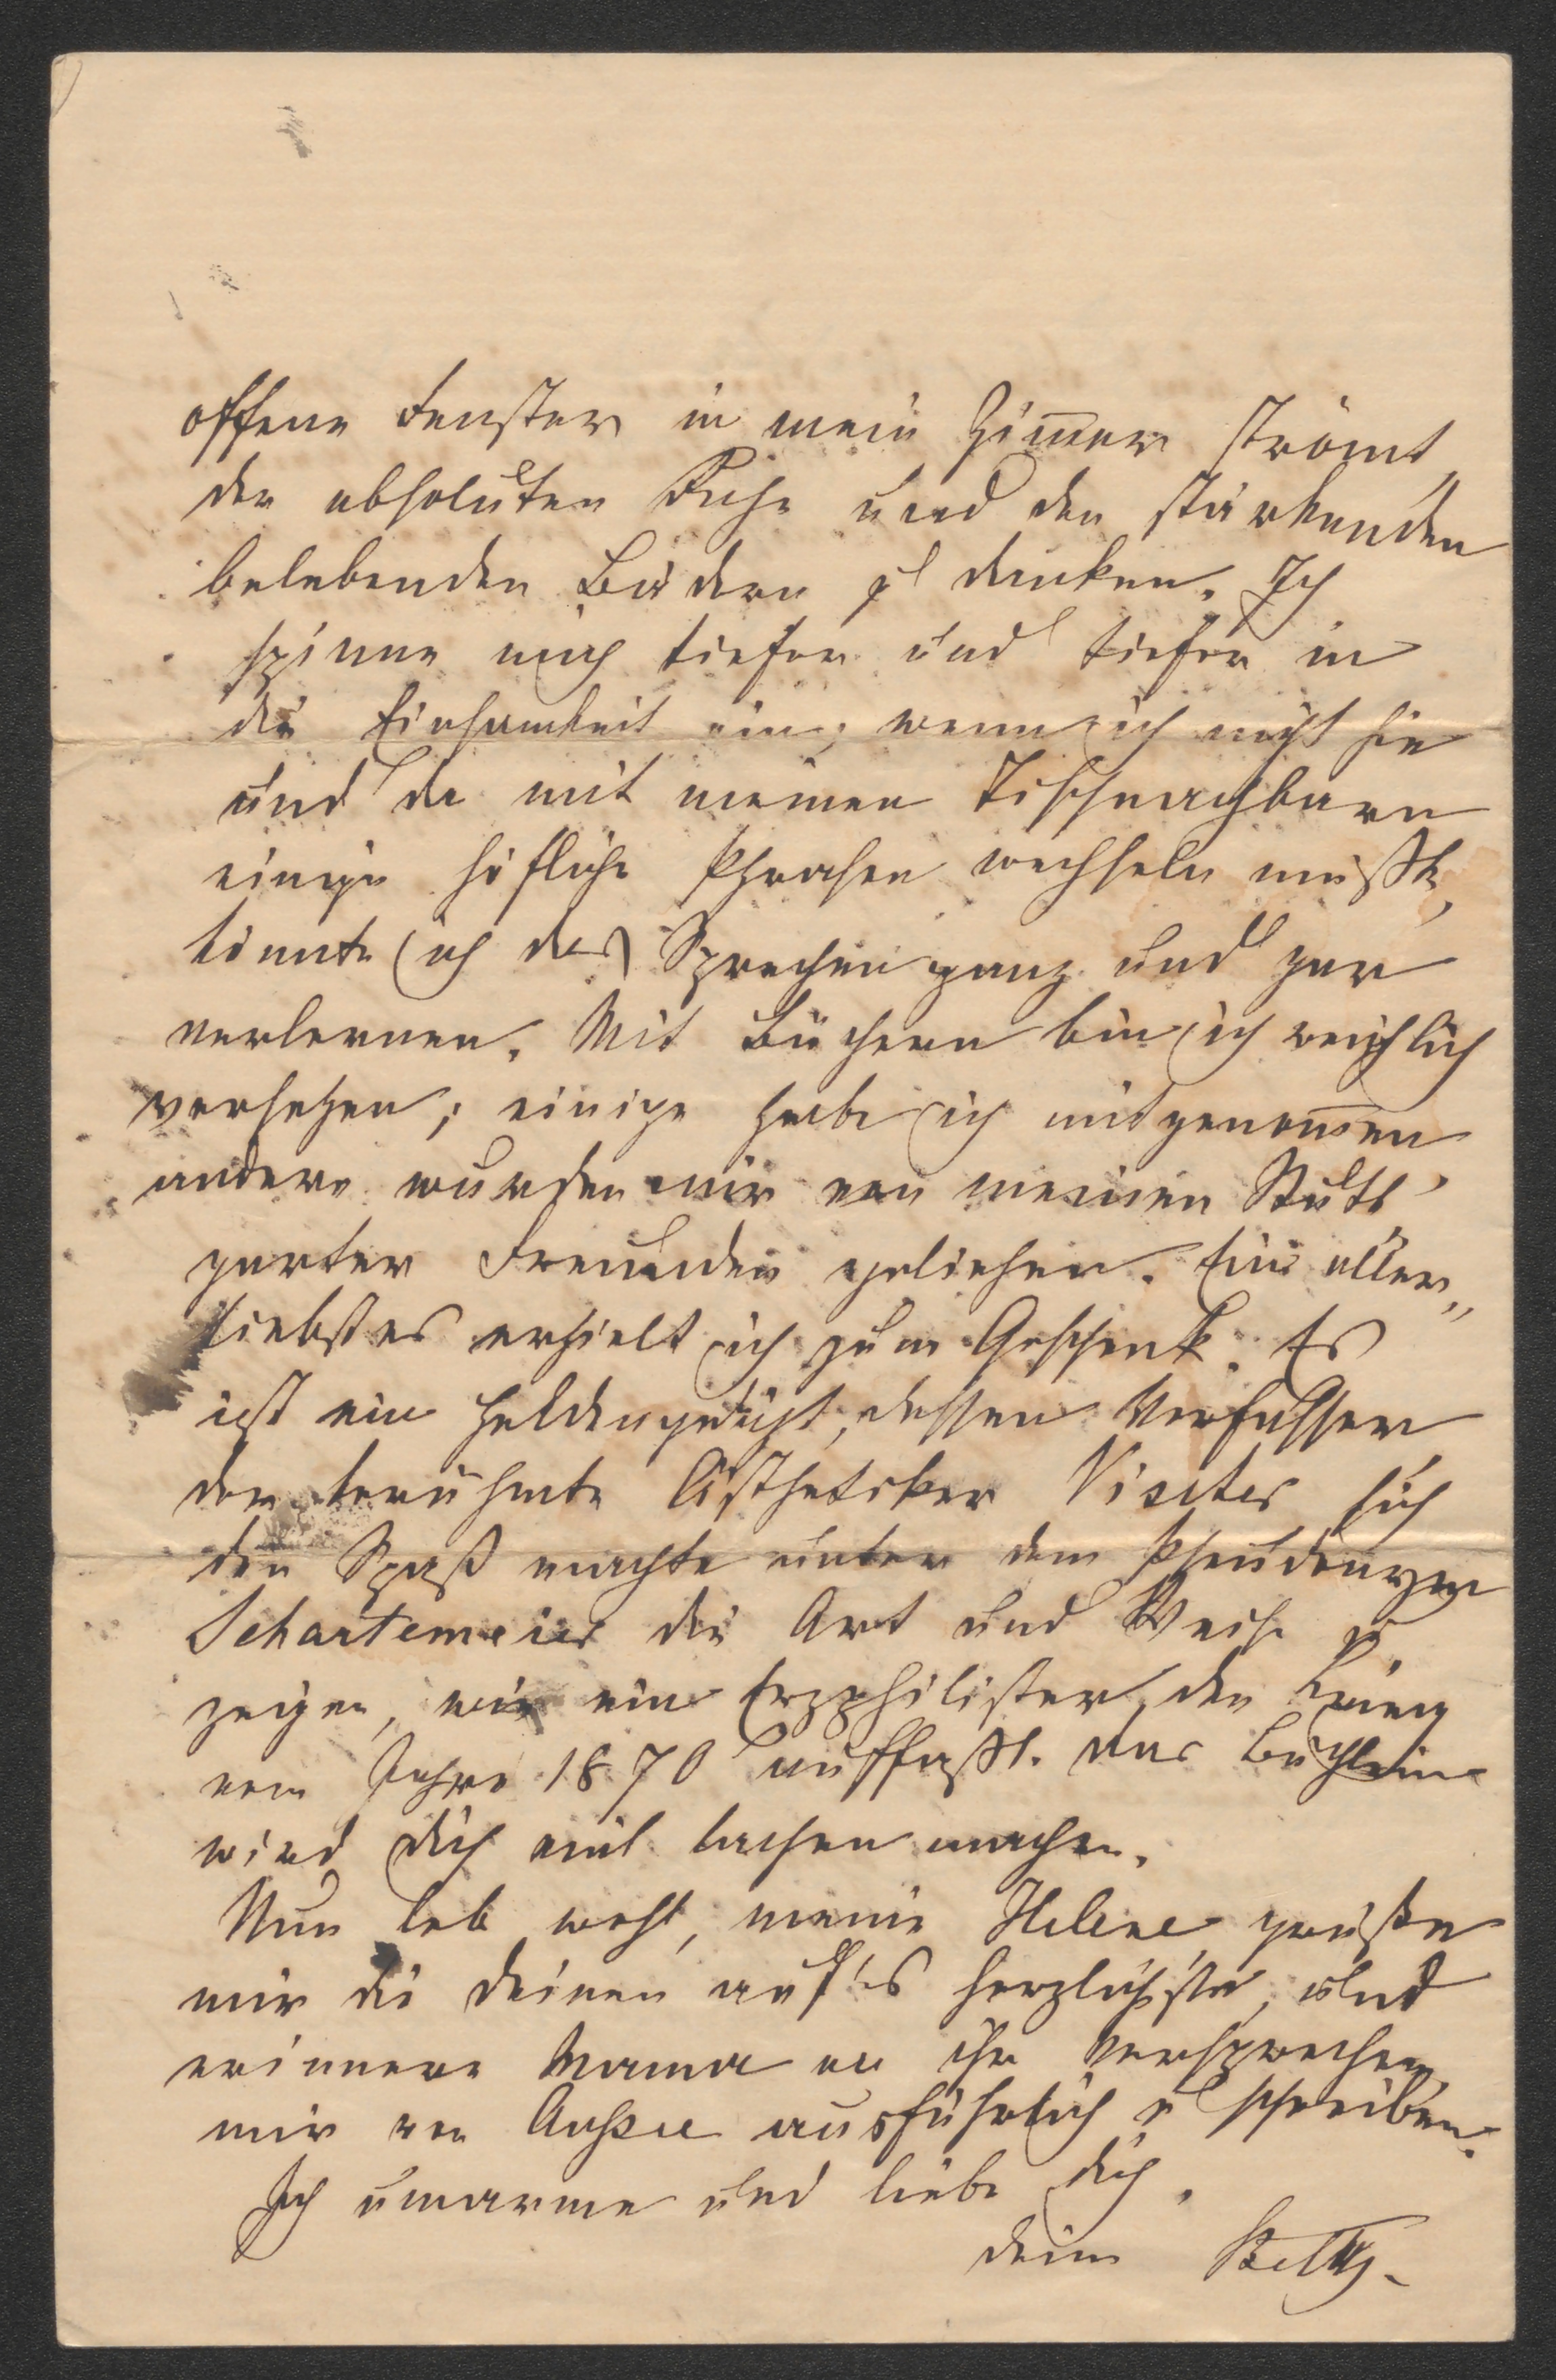 offene Fenster in mein Zim̅er strömt,
der absoluten Ruhe und den stärkenden
belebenden Bädern zu danken. Ich
spinne mich tiefer und tiefer in
die Einsamkeit ein; wenn ich nicht hie
und da mit meinen Tischnachbarn
einige höfliche Phrasen wechseln müßte,
könnte ich das Sprechen ganz und gar
verlernen. Mit Büchern bin ich reichlich
versehen; einige habe ich mitgenom̅en
andere wurden mir von meinen Stutt-
garter Freunden geliehen. Ein aller„
liebstes erhielt ich zum Geschenk. Es
ist ein Heldengedicht, dessen Verfasser
der berühmte Ästhetiker Vischer sich
den Spaß machte unter dem Pseudonym
Schartemeier die Art und Weise zu
zeigen, wie ein Erzphilister den Krieg
vom Jahre 1870 auffaßt. Das Büchlein
wird dich viel lachen machen.
Nun leb wohl, meine Helene grüße
mir die Deinen auf's herzlichste, und
erinnere Mama an ihr Versprechen
mir von Aussee ausführlich zu schreiben.
Ich umarme und liebe dich.
deine Betty.